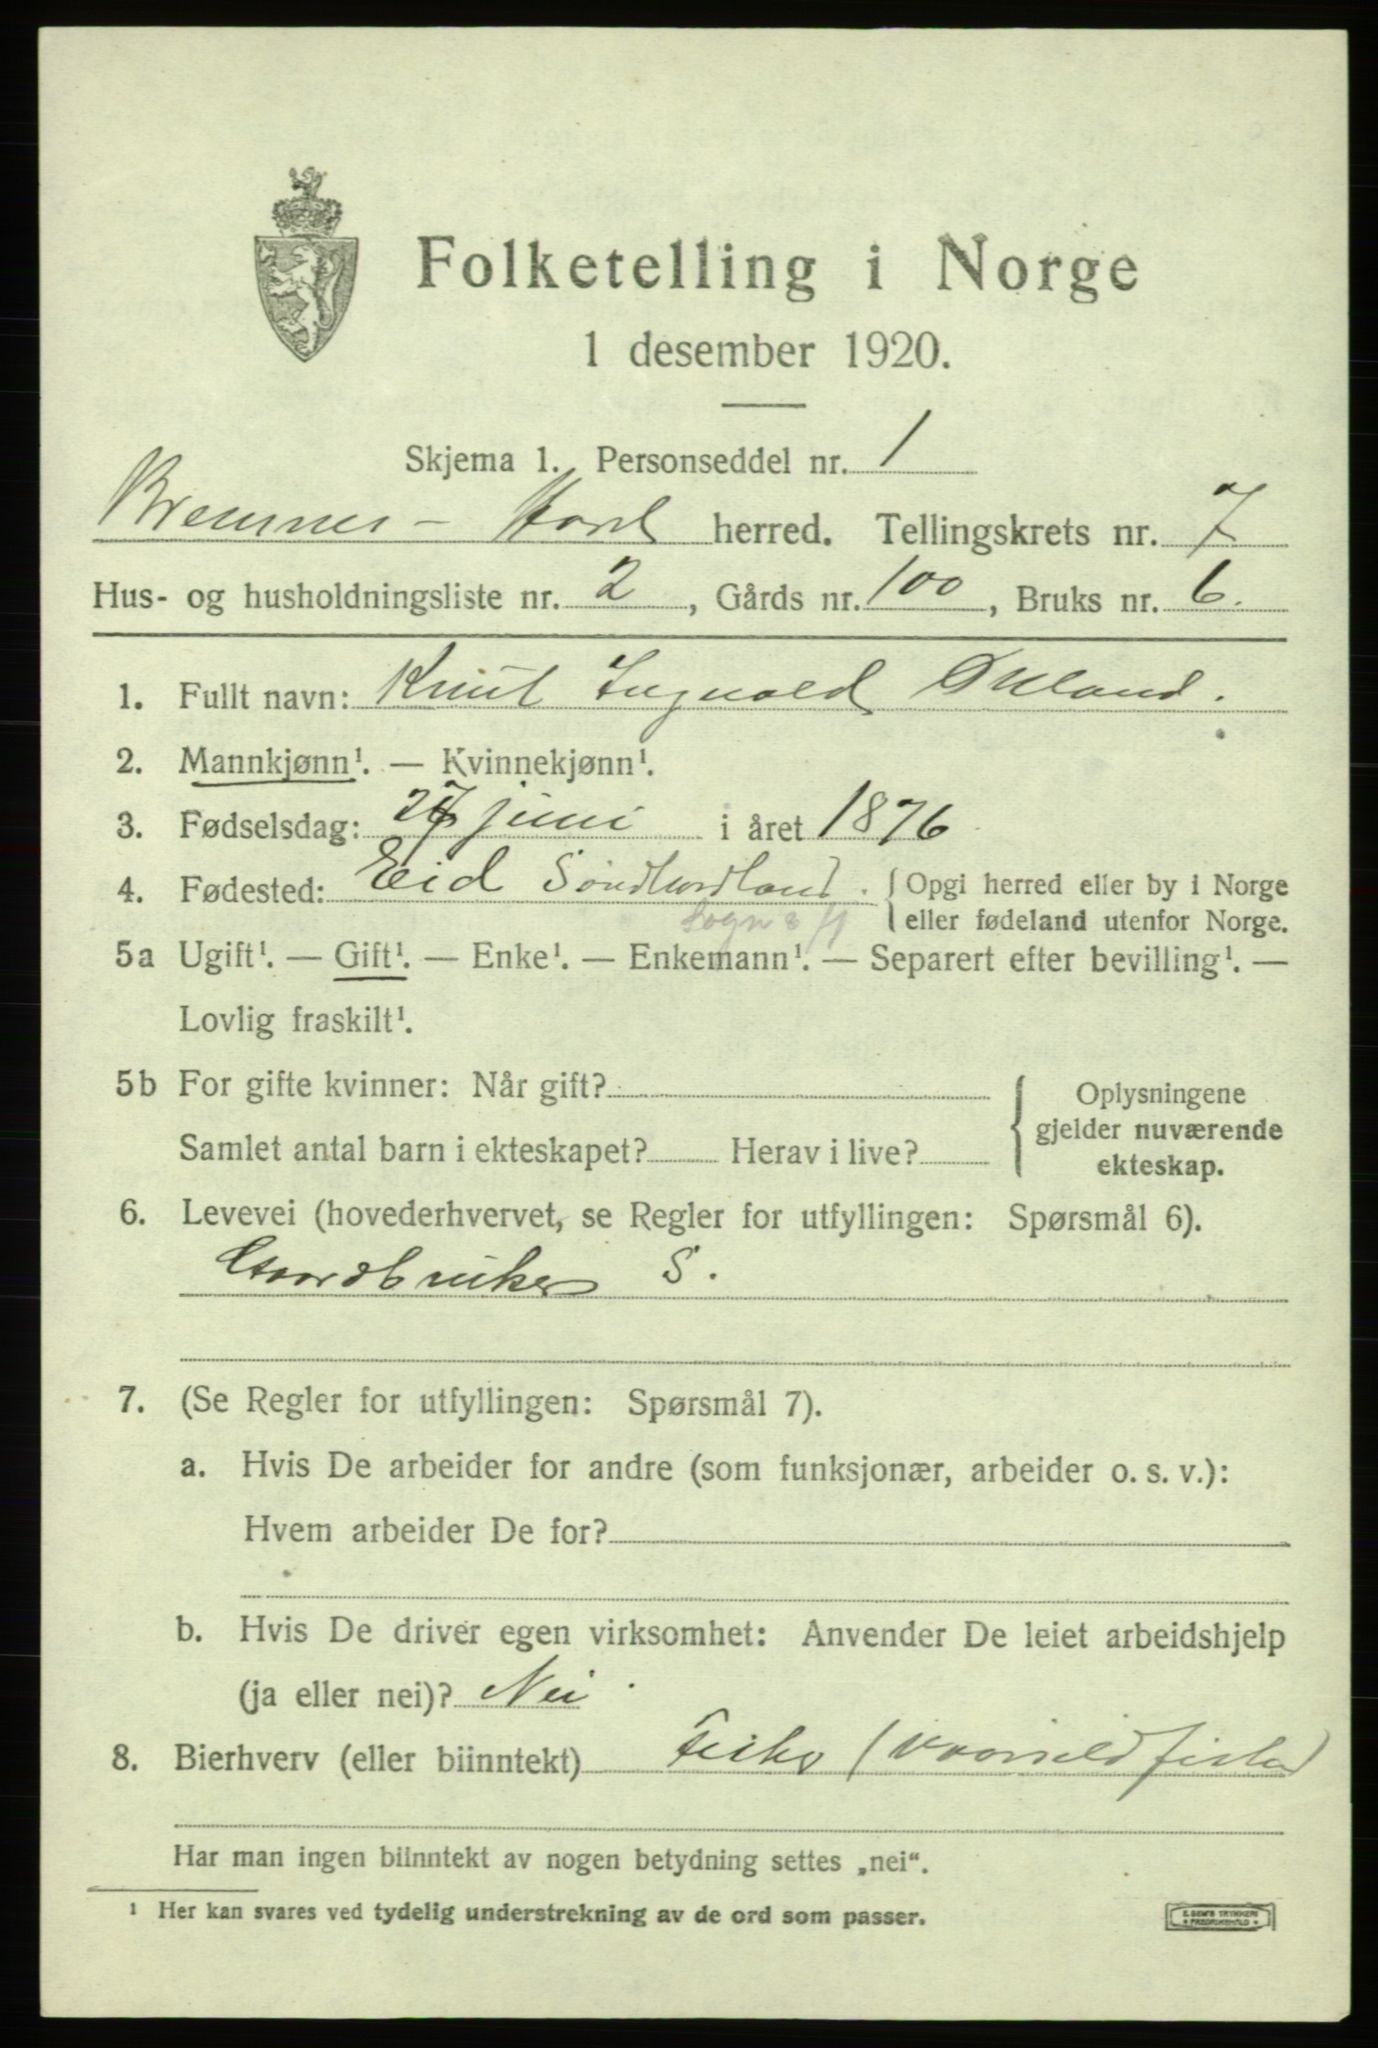 Folketelling i Norge
1 desember 1920.
Skjema 1. Personseddel nr. 1
Bremnes - Hord herred. Tellingskrets nr. 7
Hus- og husholdningsliste nr. 2, Gårds nr. 100, Bruks nr. 6.
1. Fullt navn: Knut Ingvald
2. Mannkjønn¹. — Kvinnekjønn¹.
3. Fødselsdag: 27 juni i året 1876
4. Fødested: Eid Söndhordland. { Opgi herred eller by i Norge
eller fødeland utenfor Norge.
5a Ugift¹. — Gift¹. — Enke¹. — Enkemann¹. — Separert efter bevilling¹. —
Lovlig fraskilt¹.
5b For gifte kvinner: Når gift? { Oplysningene
gjelder nuværende
Samlet antal barn i ekteskapet? Herav i live?
ekteskap.
6. Levevei (hovederhvervet, se Regler for utfyllingen: Spørsmål 6).
Gaardbruker S.
7. (Se Regler for utfyllingen: Spørsmål 7).
a. Hvis De arbeider for andre (som funksjonær, arbeider o. s. v.):
Hvem arbeider De for?
b. Hvis De driver egen virksomhet: Anvender De leiet arbeidshjelp
(ja eller nei)? Nei
8. Bierhverv (eller biinntekt) Fisker (vaarsildfisker)
Har man ingen biinntekt av nogen betydning settes „nei“.
¹ Her kan svares ved tydelig understrekning av de ord som passer.